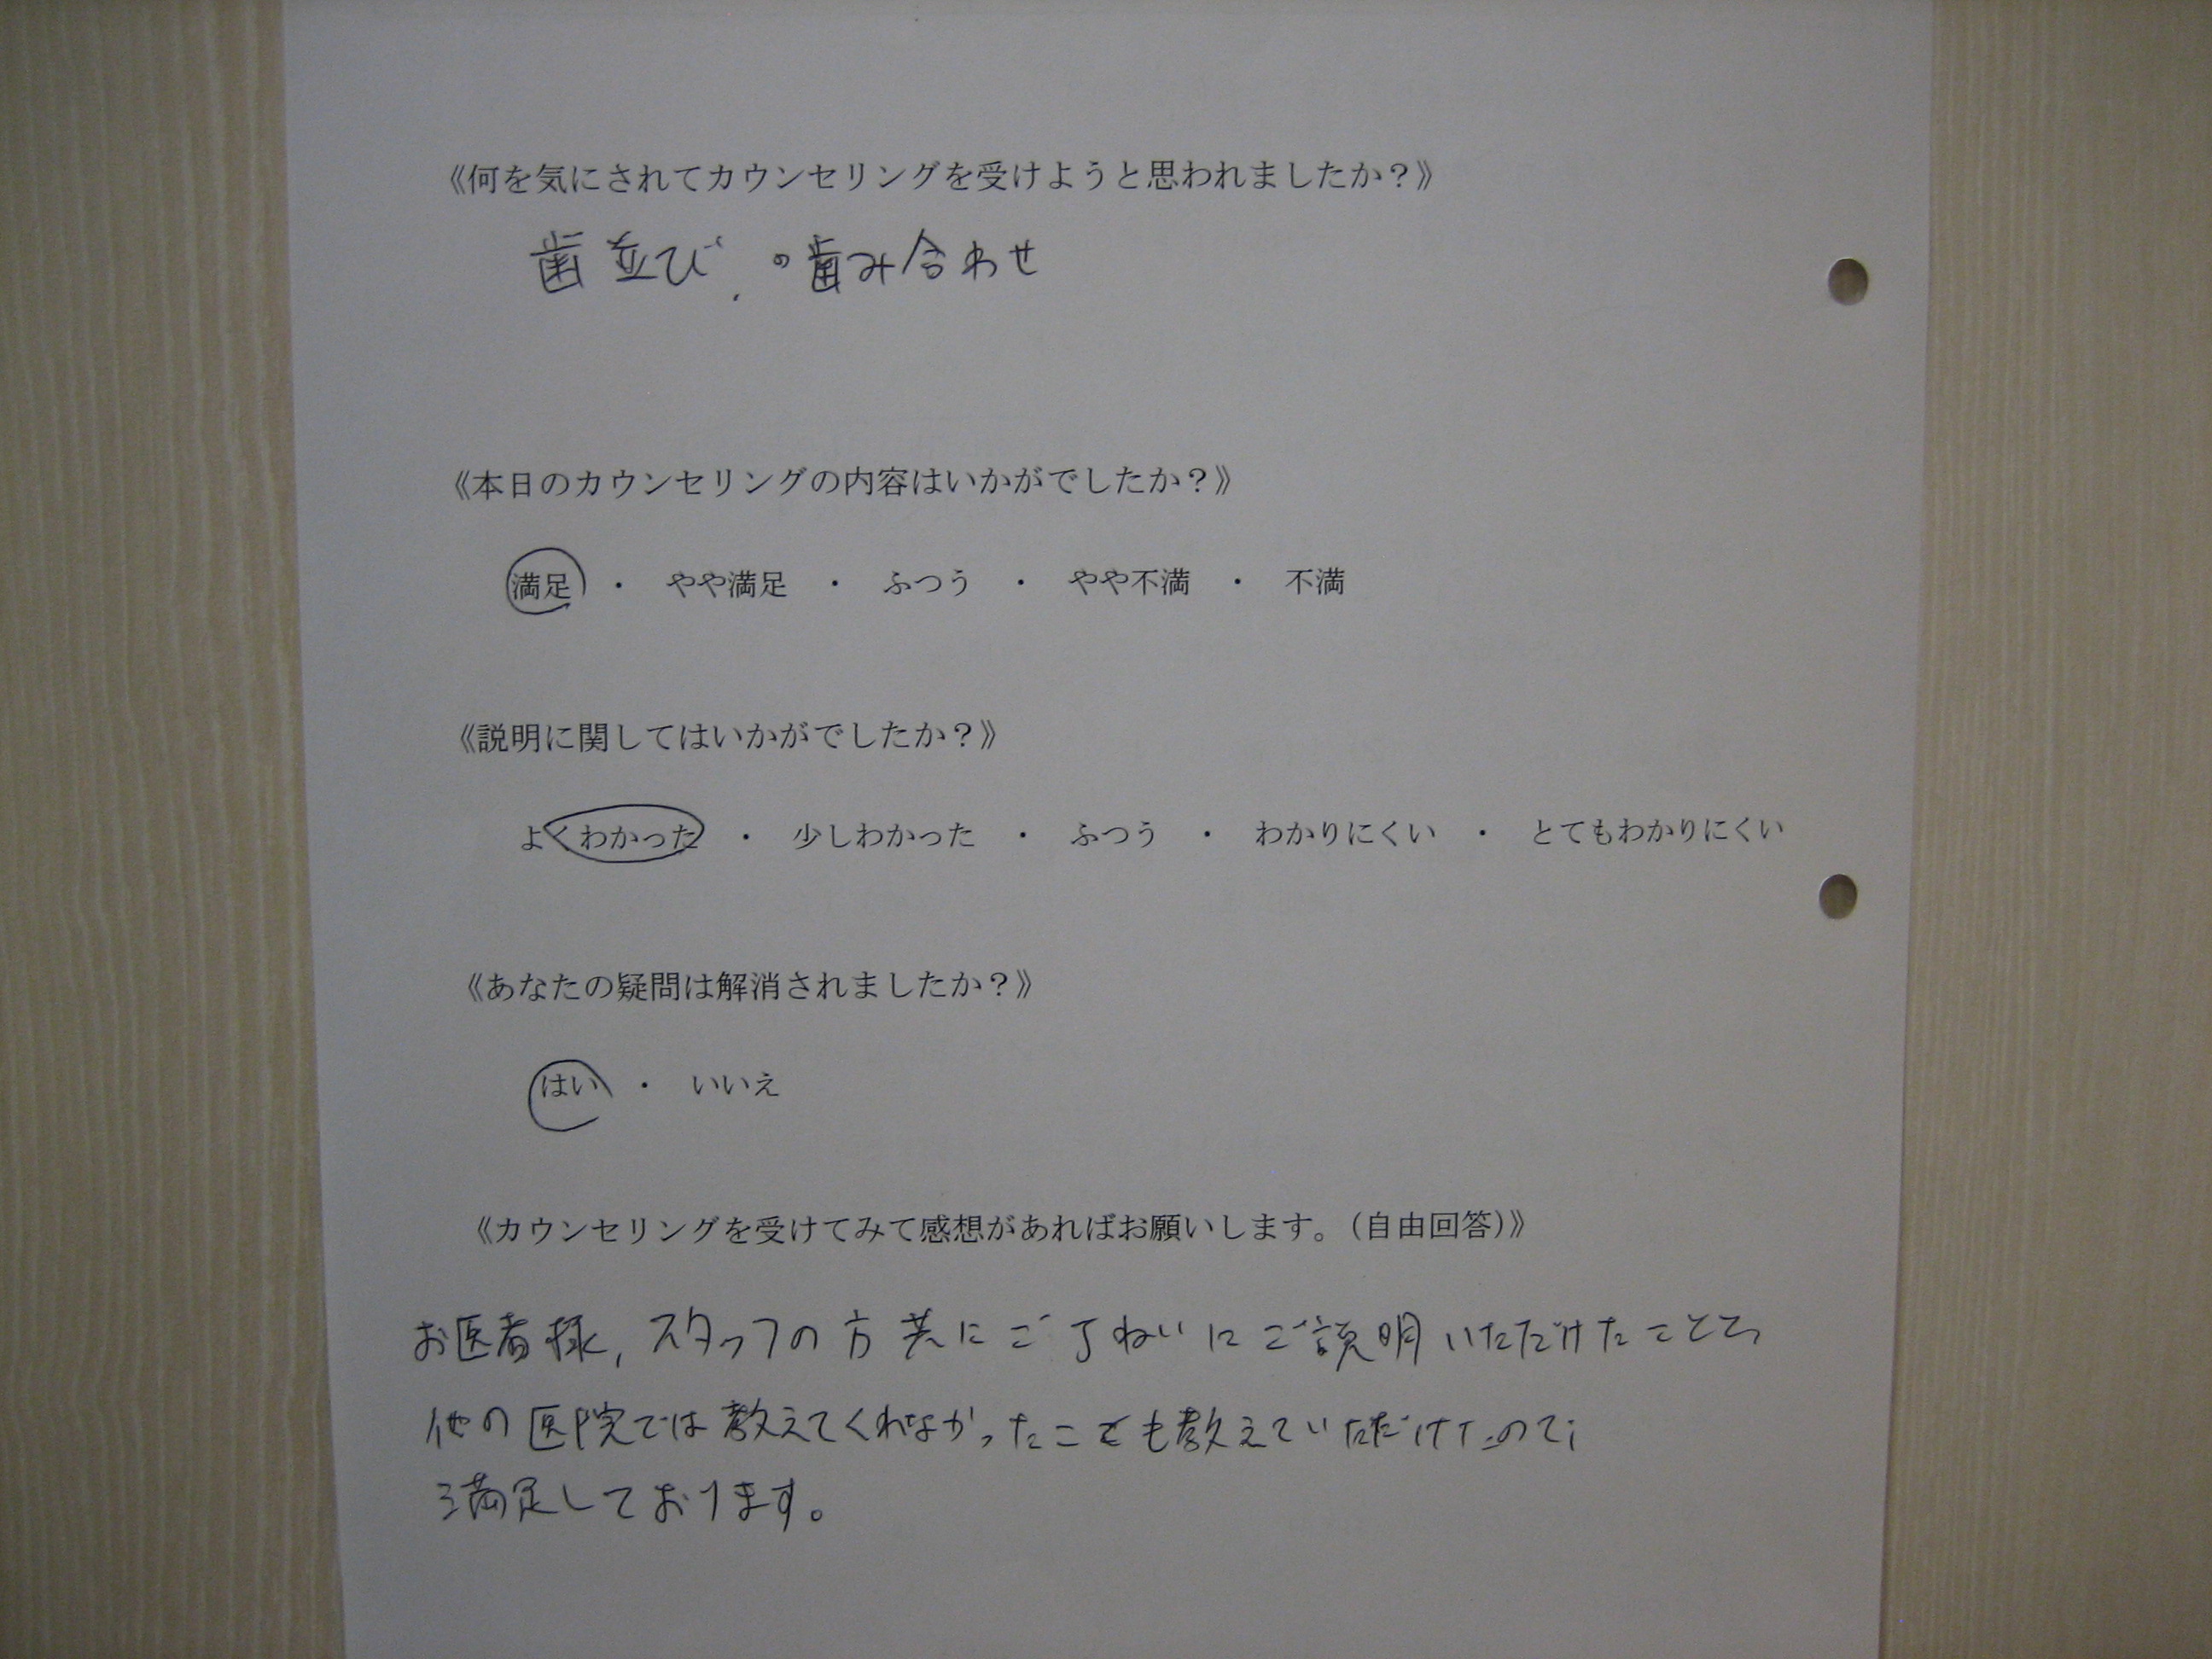 《何を気にされてカウンセリングを受けようと思われましたか？》
歯並び、の歯み合わせ
《本日のカウンセリングの内容はいかがでしたか？》
満足 ・ やや満足 ・ ふつう ・ やや不満 ・ 不満
《説明に関してはいかがでしたか？》
よくわかった ・ 少しわかった ・ ふつう ・ わかりにくい ・ とてもわかりにくい
《あなたの疑問は解消されましたか？》
はい ・ いいえ
《カウンセリングを受けてみて感想があればお願いします。（自由回答）》
お医者様，スタッフの方共にご丁ねいにご説明いただけたことと、
他の医院では教えてくれなかったことも教えていただけたので、
満足しております。